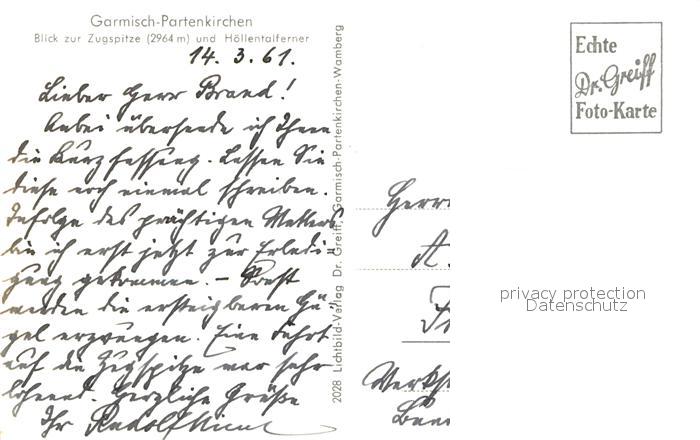 Garmisch-Partenkirchen
Blick zur Zugspitze (2964 m) und Höllentalferner
14. 3. 61.
Lieber Herr Brand!
Anbei übersende ich Ihnen
die Kurzfassung. Lassen Sie
diese noch einmal schreiben.
Infolge des prächtigen Wetters
bin ich erst jetzt zur Erledi-
gung gekommen. – Sonst
werden die ersteigbaren
gel erzwungen. Eine Fahrt
auf die Zugspitze war sehr
lohnend. Herzliche Grüße
Ihr Rudolf
2028 Lichtbild-Verlag Dr. Greiff, Garmisch-Partenkirchen-Wamberg
Echte
Dr. Greiff
Foto-Karte
Herrn
A.
privacy protection
Datenschutz